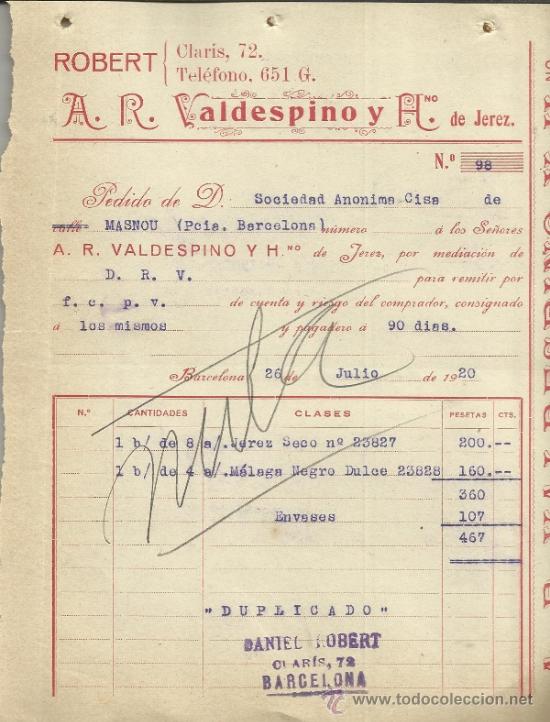 ROBERT { Claris, 72.
Teléfono, 651 G.
A. R. Valdespino y H.no de Jerez.
N.º 98
Pedido de D. Sociedad Anonima Cisa de
calle MASNOU (Pcia. Barcelona) número á los Señores
A. R. VALDESPINO Y H.no de Jerez, por mediación de
D. R. V. para remitir por
f. c. p. v. de cuenta y riesgo del comprador, consignado
á los mismos y pagadero á 90 dias.
Barcelona 26 de Julio de 1920
N.º CANTIDADES CLASES PESETAS CTS.
1 b/ de 8 a/. Jerez Seco nº 23827 200.--
1 b/ de 4 a/. Málaga Negro Dulce 23828 160.--
360
Envases 107
467
nula
"DUPLICADO"
DANIEL ROBERT
CLARÍS, 72
BARCELONA
www.todocoleccion.net